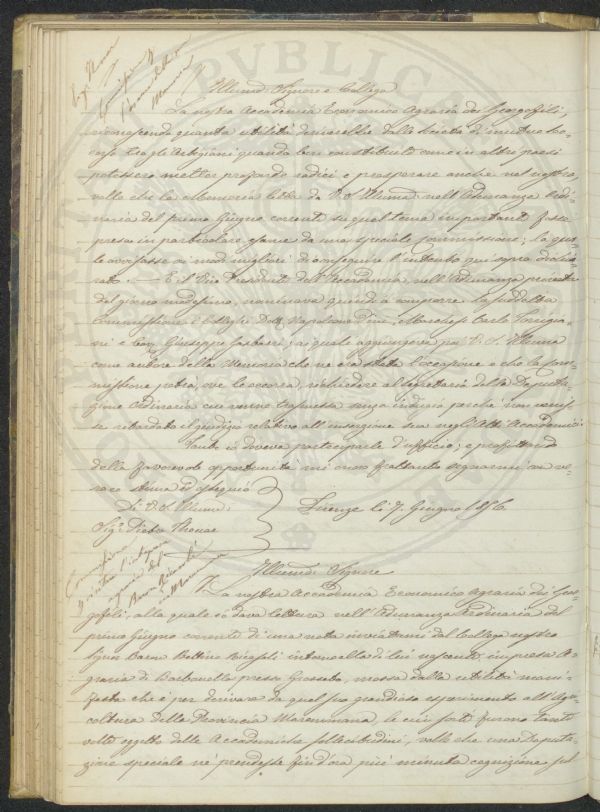 Sig.r Thouar
Commissione
Illumo. Signore e Collega
La nostra Accademia Economico Agraria dei Georgofili,
riconoscendo quanta utilità deriverebbe dalle Società di mutuo soc-
corso tra gli Artigiani quando ben constituite come in altri paesi
potessero metter profonde radici e prosperare anche nel nostro,
volle che la Memoria letta da V. S. Illuma. nell'Adunanza Ordi-
naria del primo Giugno corrente su quel tema importante fosse
presa in particolare esame da una speciale Commissione; la qua-
le avvisasse ai modi migliori di conseguire l'intento qui sopra dichia-
rato. — E il Vice Presidente dell'Accademia, nell'Adunanza
del giorno medesimo, nominava quindi a comporre la suddetta
Commissione i Colleghi Dott. Napoleone Pini, Marchese Carlo Torrigia-
ni e Cav. Giuseppe Garbasi; ai quali aggiungeva poi V. S. Illuma
come autore della Memoria che ne era stata l'occasione e che la Com-
missione potrà, ove le occorra, richiedere al Segretario della Deputa-
zione Ordinaria cui venne trasmessa senza indugio perché non venis-
se ritardato il giudizio relativo all'inserzione sua negli Atti Accademici.
Tanto io doveva parteciparle d'ufficio; e profittando
della favorevole opportunità mi onoro frattanto segnarmi con ve-
race stima ed ossequio
Di V. S. Illuma.
Firenze li 7. Giugno 1856.
Sigr. Pietro Thouar
Commissione
Illumo. Signore
La nostra Accademia Economico Agraria dei Geor-
gofili, alla quale io dava lettura nell'Adunanza Ordinaria del
primo Giugno corrente di una nota inviatami dal Collega nostro
Signor Baron Bettino Ricasoli intorno alla di lui nascente impresa A-
graria di Barbanella presso Grosseto, mossa dalla utilità mani-
festa che è per derivare da quel suo grandioso esperimento all'Agri-
coltura della Provincia Maremmana, le cui sorti furono tante
volte oggetto delle Accademiche sollecitudini, volle che una Deputa-
zione speciale ne prendesse fin d'ora più minuta cognizione sul